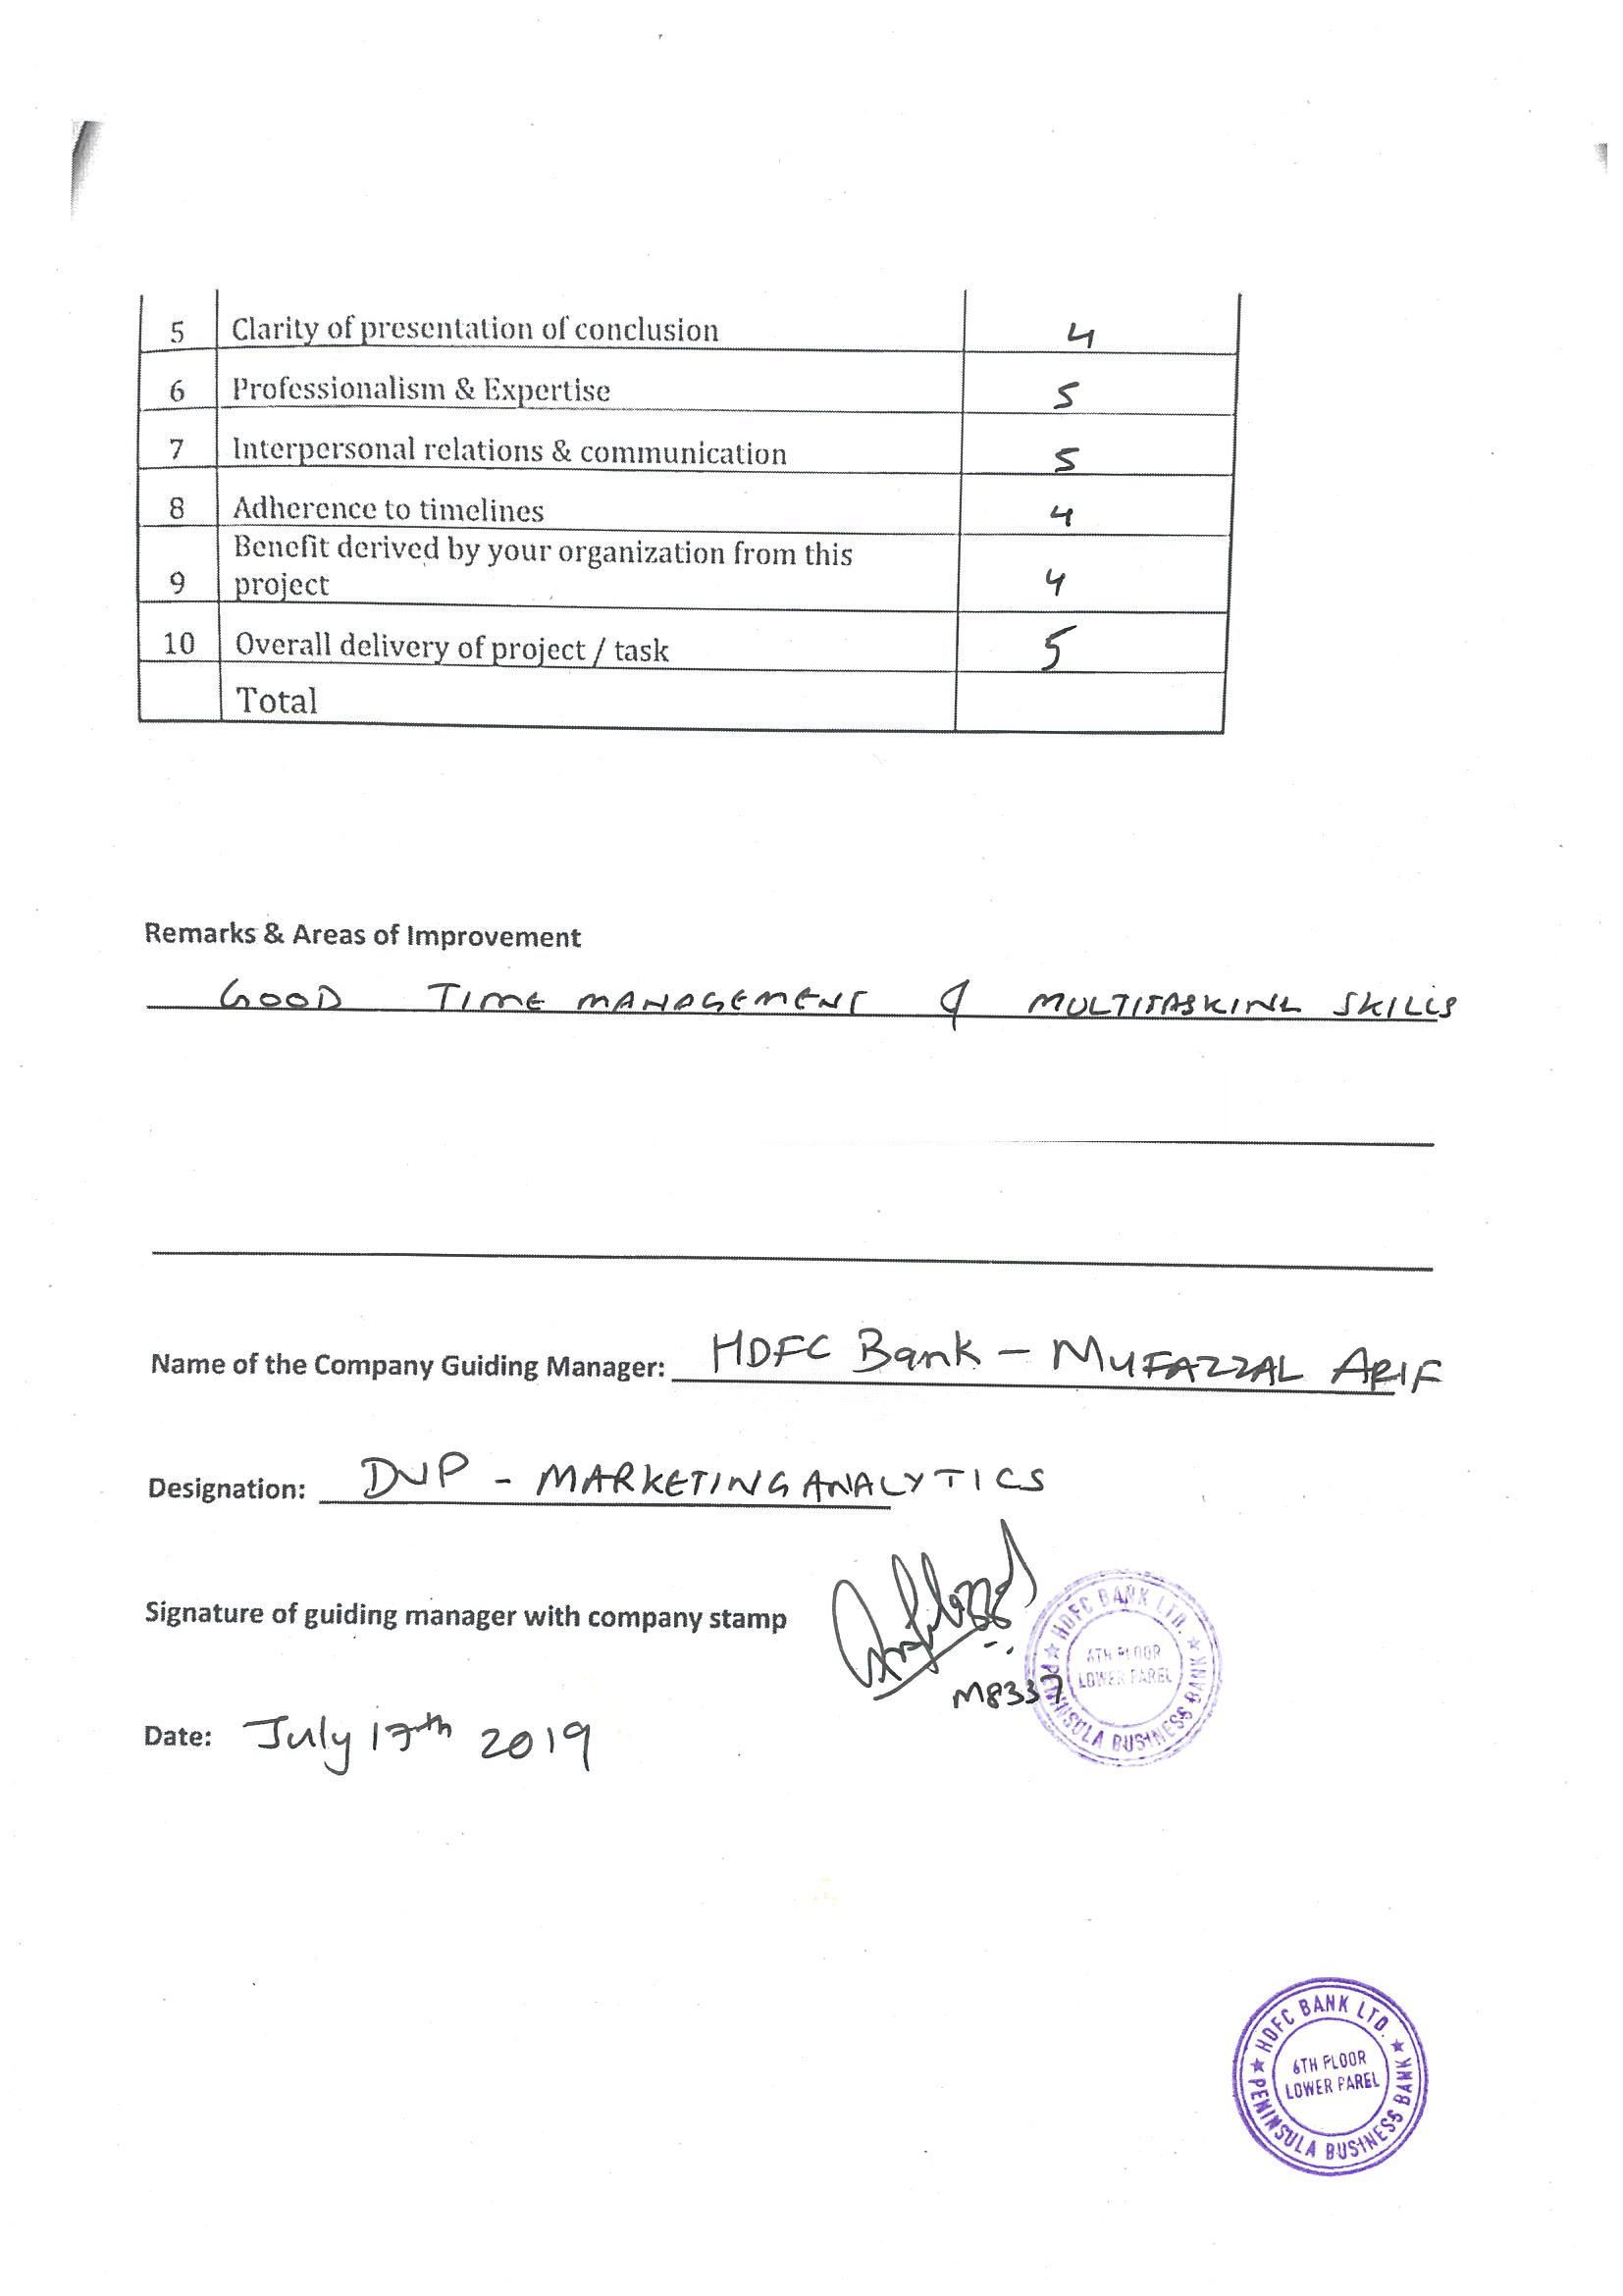 5 Clarity of presentation of conclusion 4
6 Professionalism & Expertise 5
7 Interpersonal relations & communication 5
8 Adherence to timelines 4
Benefit derived by your organization from this
9 project 4
10 Overall delivery of project / task 5
Total
Remarks & Areas of Improvement
GOOD TIME MANAGEMENT & MULTITASKING SKILLS
Name of the Company Guiding Manager: HDFC Bank - MUFAZZAL ARIF
Designation: DVP - MARKETING ANALYTICS
Signature of guiding manager with company stamp
M8337
HDFC BANK LTD.
6TH FLOOR
LOWER PAREL
PENINSULA BUSINESS BANK
Date: July 17th 2019
HDFC BANK LTD.
6TH FLOOR
LOWER PAREL
PENINSULA BUSINESS BANK